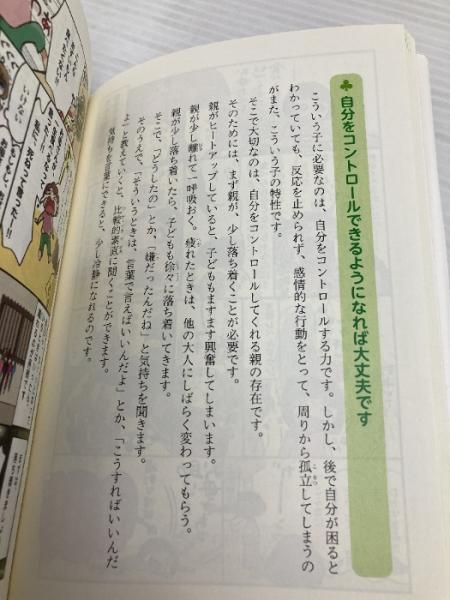 自分をコントロールできるようになれば大丈夫です
こういう子に必要なのは、自分をコントロールする力です。しかし、後で自分が困ると
わかっていても、反応を止められず、感情的な行動をとって、周りから孤立してしまうの
がまた、こういう子の特性です。
そこで大切なのは、自分をコントロールしてくれる親の存在です。
そのためには、まず親が、少し落ち着くことが必要です。
親がヒートアップしていると、子どももますます興奮してしまいます。
親が少し離れて一呼吸おく。疲れたときは、他の大人にしばらく変わってもらう。
親が少し落ち着いたら、子どもも徐々に落ち着いてきます。
そこで、「どうしたの」とか、「嫌だったんだね」と気持ちを聞きます。
そのうえで、「そういうときは、言葉で言えばいいんだよ」とか、「こうすればいいんだ
よ」と教えていくと、比較的素直に聞くことができます。
気持ちを言葉にできると、少し冷静になれるのです。